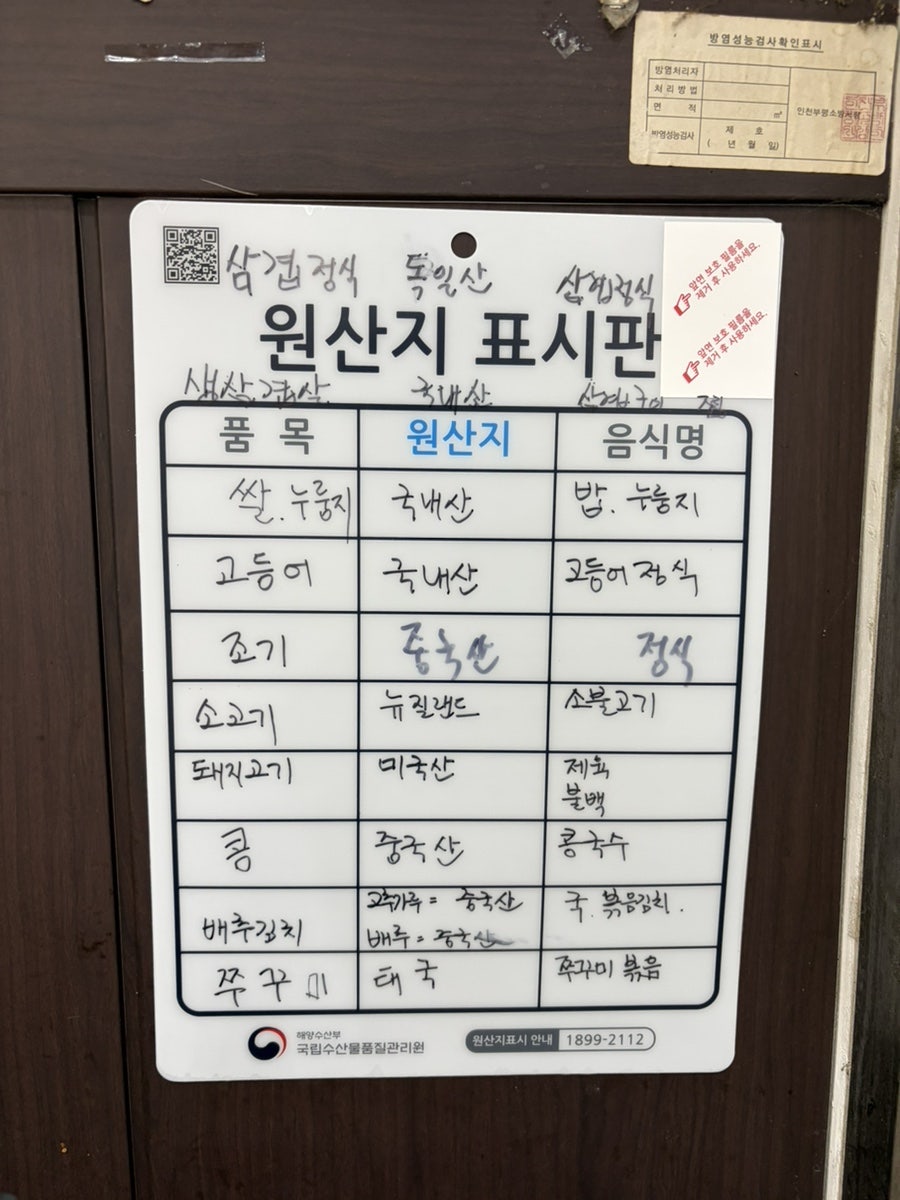 방염성능검사확인표시
방염처리자
처리방법
면 적 ㎡
인천부평소방서장
방염성능검사 제 호
( 년 월 일)
삼겹정식 독일산 삼겹정식
앞면 보호 필름을
제거 후 사용하세요.
앞면 보호 필름을
제거 후 사용하세요.
원산지 표시판
생삼겹살 국내산
품 목 원산지 음식명
쌀. 누룽지 국내산 밥. 누룽지
고등어 국내산 고등어정식
조기 중국산 정식
소고기 뉴질랜드 소불고기
돼지고기 미국산 제육
불백
콩 중국산 콩국수
배추김치 고추가루= 중국산 국. 볶음김치.
배추= 중국산
쭈꾸미 태국 쭈꾸미 볶음
해양수산부
국립수산물품질관리원
원산지표시 안내 1899-2112